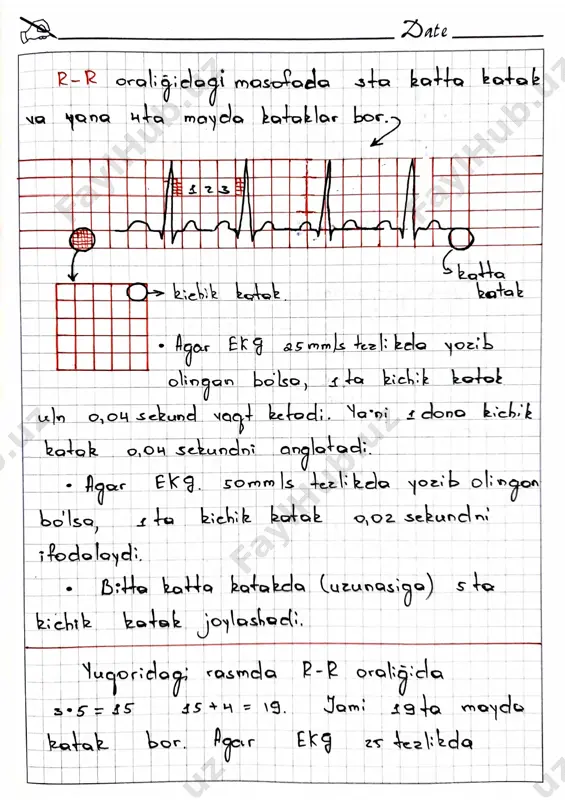 Date
R-R oralig'idagi masofada 3ta katta katak
va yana 4ta mayda kataklar bor.
1 2 3
katta
katak
kichik katak.
• Agar EKG 25mm/s tezlikda yozib
olingan bo'lsa, 1ta kichik katak
u/n 0,04 sekund vaqt ketadi. Ya'ni 1 dona kichik
katak 0,04 sekundni anglatadi.
• Agar EKG. 50mm/s tezlikda yozib olingan
bo'lsa, 1ta kichik katak 0,02 sekundni
ifodalaydi.
• Bitta katta katakda (uzunasiga) 5 ta
kichik katak joylashadi.
Yuqoridagi rasmda R-R oralig'ida
3·5=15 15+4=19. Jami 19ta mayda
katak bor. Agar EKG 25 tezlikda
FaylHub.uz
FaylHub.uz
FaylHub.uz